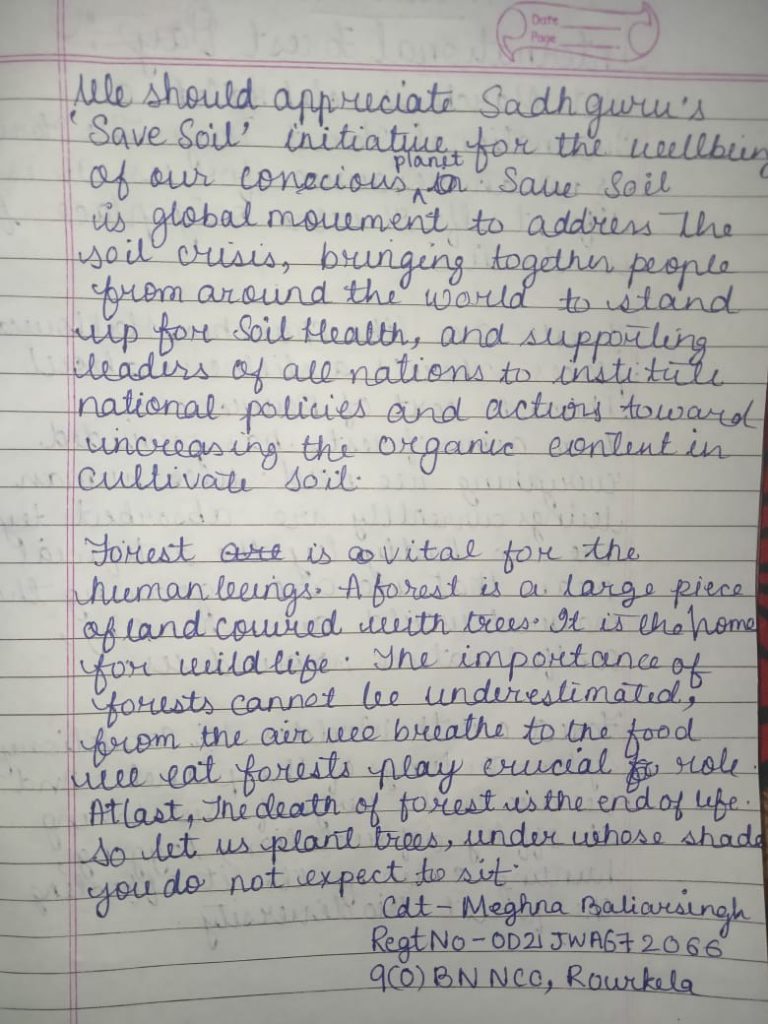 Date
Page
We should appreciate Sadhguru's
'Save Soil' initiative for the wellbeing
of our conscious planet. Save Soil
is global movement to address The
soil crisis, bringing together people
from around the world to stand
up for Soil Health, and supporting
leaders of all nations to institute
national policies and actions toward
increasing the organic content in
cultivate soil.
Forest is vital for the
human beings. A forest is a large piece
of land covered with trees. It is the home
for wild life. The importance of
forests cannot be underestimated,
from the air we breathe to the food
we eat forests play crucial role.
At last, The death of forest is the end of life.
So let us plant trees, under whose shade
you do not expect to sit.
Cdt - Meghna Baliarsingh
Regt No - OD21JWA672066
9(O) BN NCC, Rourkela